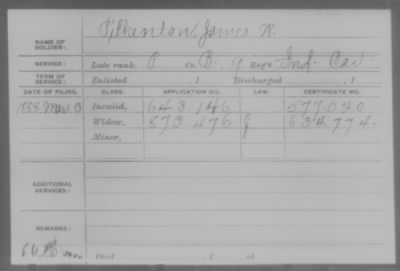 Pilkenton, James K.
NAME OF SOLDIER:
SERVICE: Late rank, P Co. B, 9 Reg't Ind. Cav.
TERM OF SERVICE: Enlisted , 1 Discharged , 1
DATE OF FILING. CLASS. APPLICATION NO. LAW. CERTIFICATE NO.
1888 Mar. 3 Invalid, 643,146 577,020
Widow, 873,476 J 634,774.
Minor,
ADDITIONAL SERVICES:
REMARKS:
Died , 1 , at